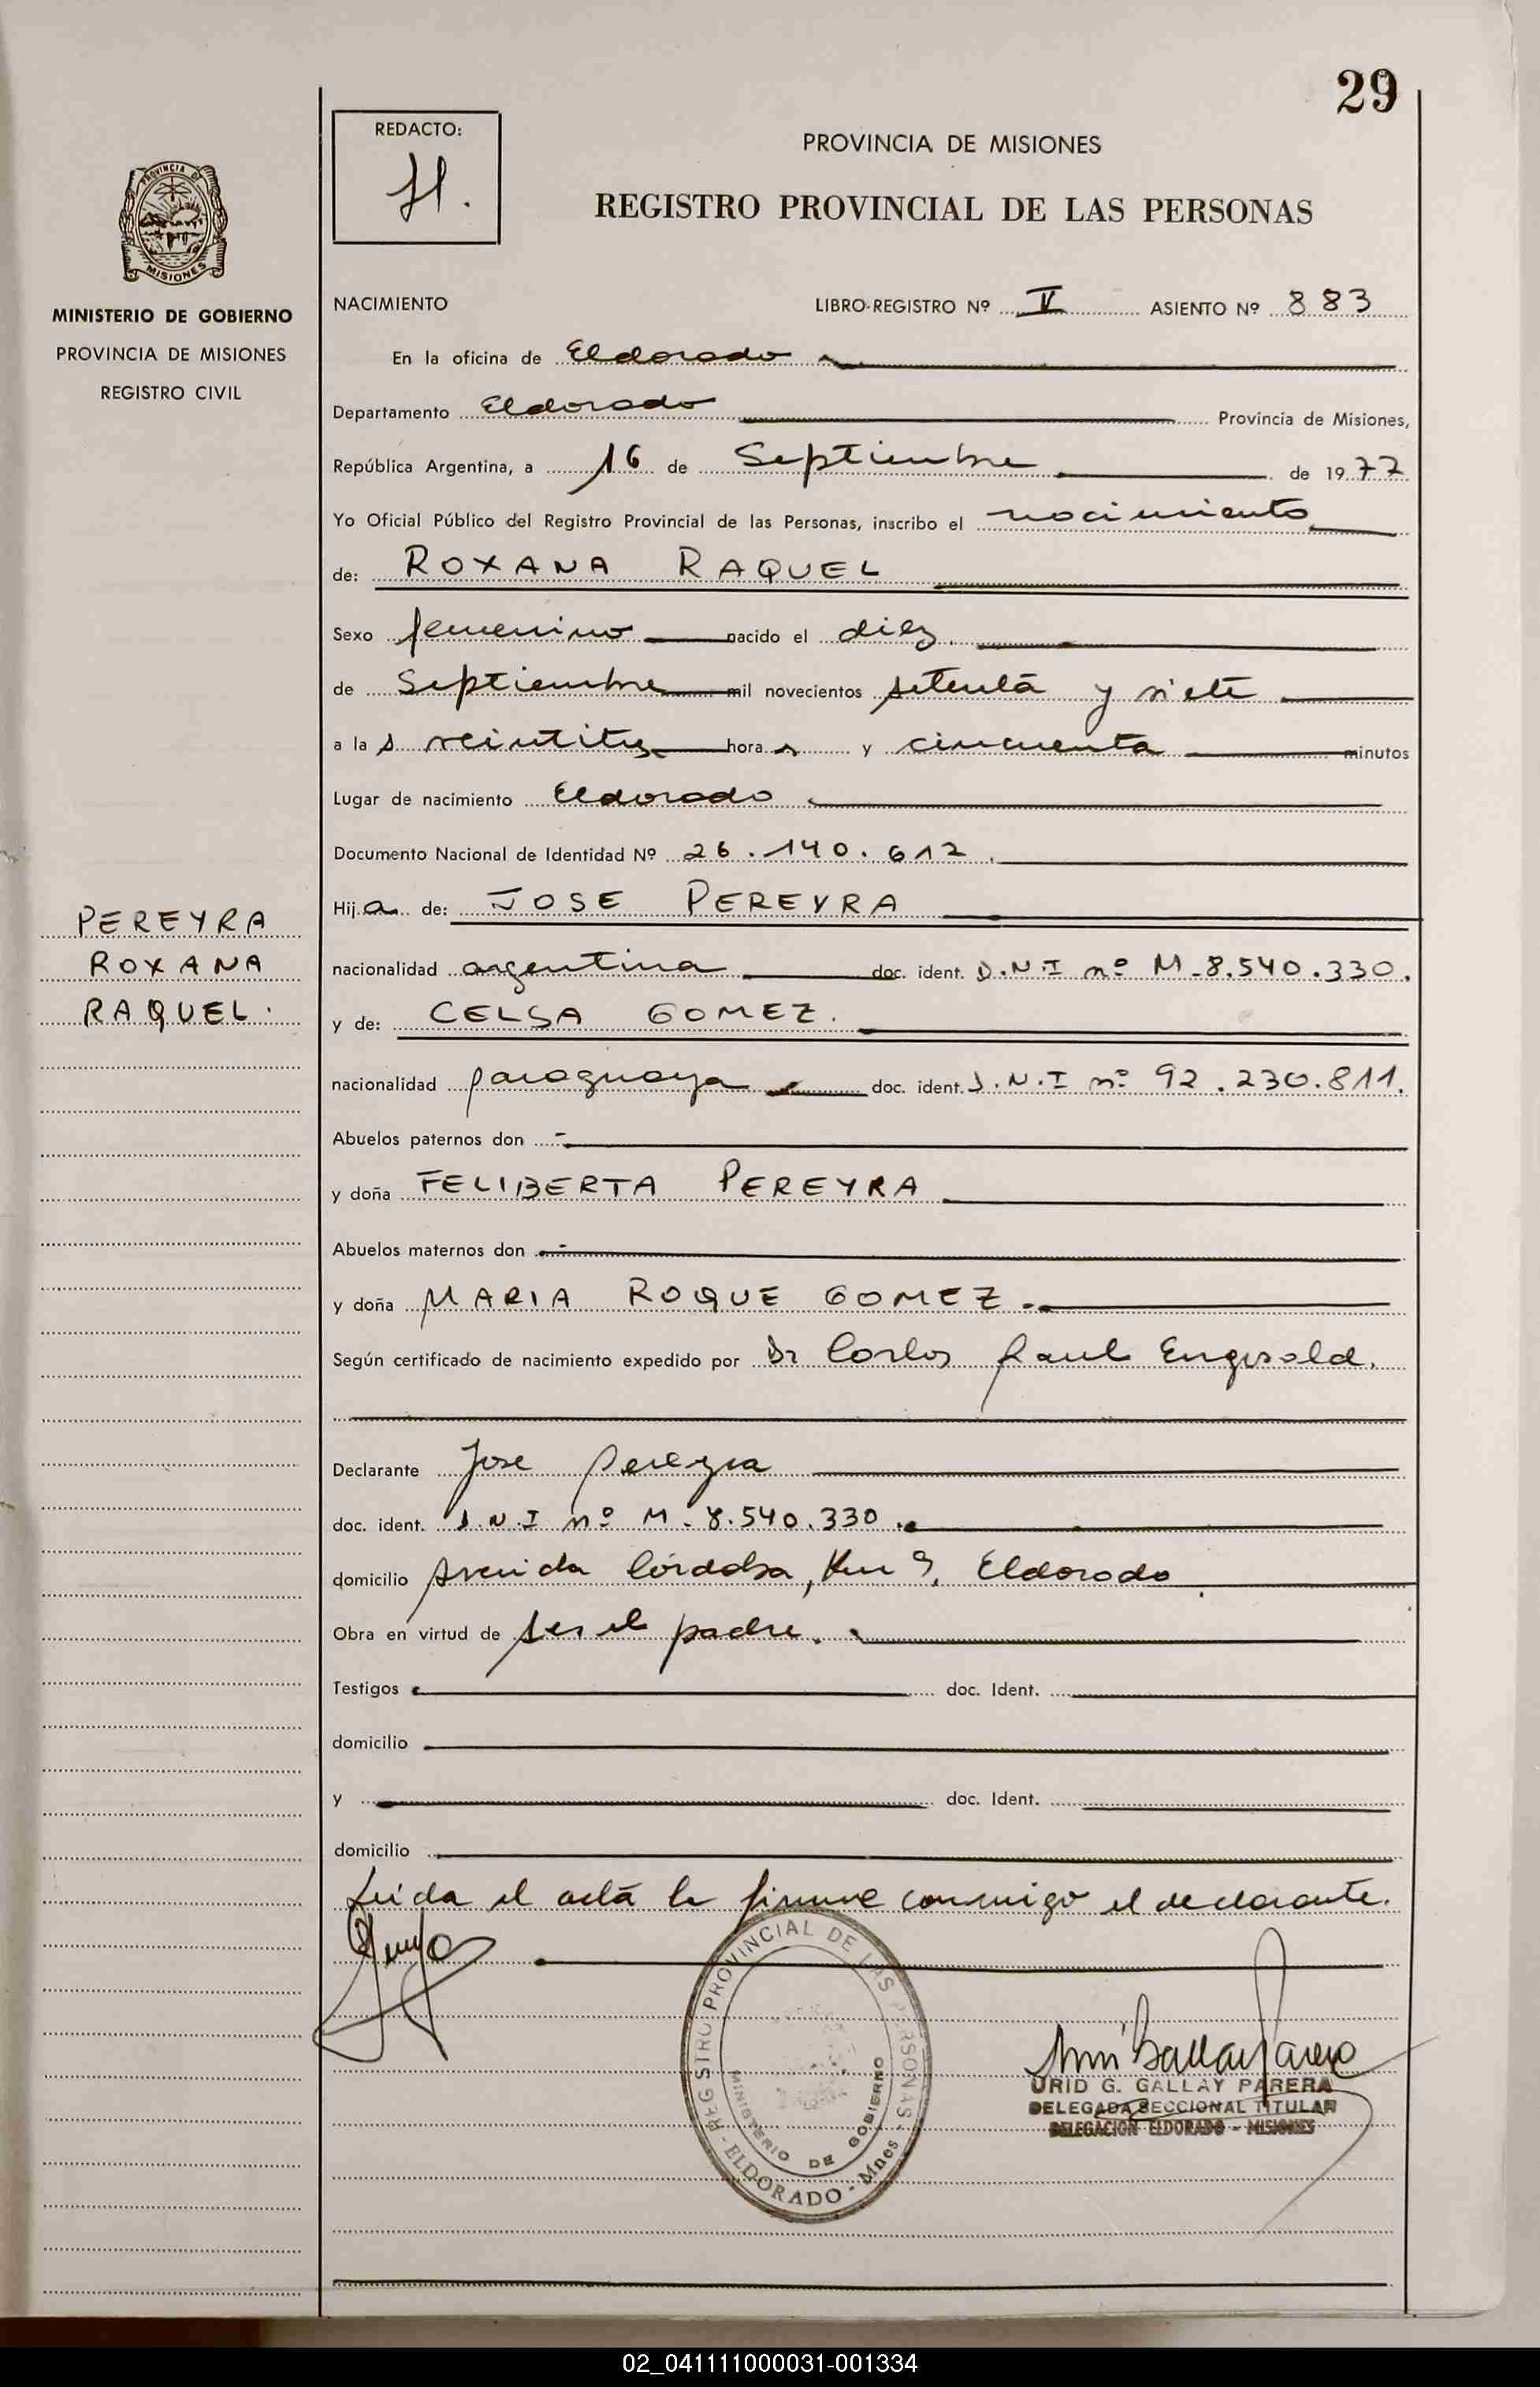 29
REDACTO:
H.
PROVINCIA DE MISIONES
REGISTRO PROVINCIAL DE LAS PERSONAS
PROVINCIA DE
MISIONES
MINISTERIO DE GOBIERNO
PROVINCIA DE MISIONES
REGISTRO CIVIL
NACIMIENTO LIBRO-REGISTRO Nº V ASIENTO Nº 883
En la oficina de Eldorado
Departamento Eldorado Provincia de Misiones,
República Argentina, a 16 de Septiembre de 1977
Yo Oficial Público del Registro Provincial de las Personas, inscribo el nacimiento
de: ROXANA RAQUEL
Sexo femenino nacido el diez.
de Septiembre mil novecientos setenta y siete
a las veintitres horas y cincuenta minutos
Lugar de nacimiento Eldorado
Documento Nacional de Identidad Nº 26.140.612.
PEREYRA
ROXANA
RAQUEL.
Hija de: JOSE PEREYRA
nacionalidad argentina doc. ident. D.N.I nº M-8.540.330.
y de: CELSA GOMEZ.
nacionalidad paraguaya doc. ident. D.N.I nº 92.230.811.
Abuelos paternos don -
y doña FELIBERTA PEREYRA
Abuelos maternos don -
y doña MARIA ROQUE GOMEZ.
Según certificado de nacimiento expedido por Dr Carlos Raul
Declarante Jose Pereyra
doc. ident. D.N.I nº M-8.540.330.
domicilio Avenida Córdoba, Km 9, Eldorado
Obra en virtud de ser el padre.
Testigos doc. Ident.
domicilio
y doc. Ident.
domicilio
Leida el acta la firma conmigo el declarante.
REGISTRO PROVINCIAL DE LAS PERSONAS
MINISTERIO DE GOBIERNO
ELDORADO - Mnes
URID G. GALLAY PARERA
DELEGADA SECCIONAL TITULAR
DELEGACION ELDORADO - MISIONES
02_041111000031-001334